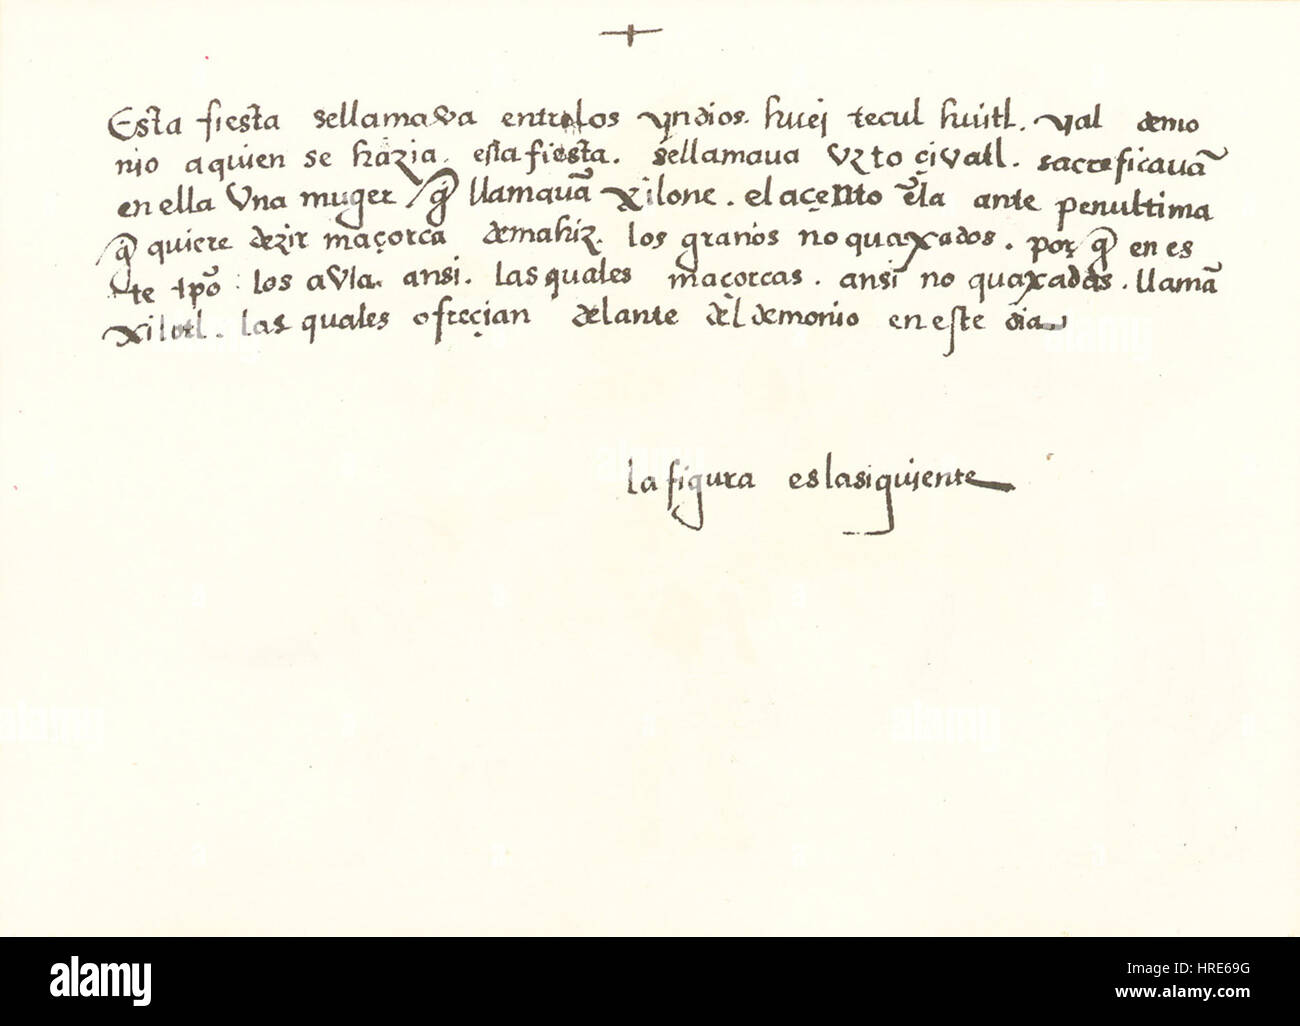 Esta fiesta sellamava entrelos yndios. huei tecul huitl. yal demo
nio aquien se hazia. esta fiesta. sellamaua vztoçivatl. sacreficavā
en ella vna muger / q̄ llamauā xilone. el açento ēla ante penultima
q̄ quiere dezir maçorca demahiz. los granos no quaxados. porq̄ en es
te tpō los avia. ansi. las quales maçorcas. ansi no quaxadas. llamā
xilotl. las quales ofreçian delante del demonio en este dia
la figura es lasiguiente
alamy
Image ID: HRE69G
www.alamy.com